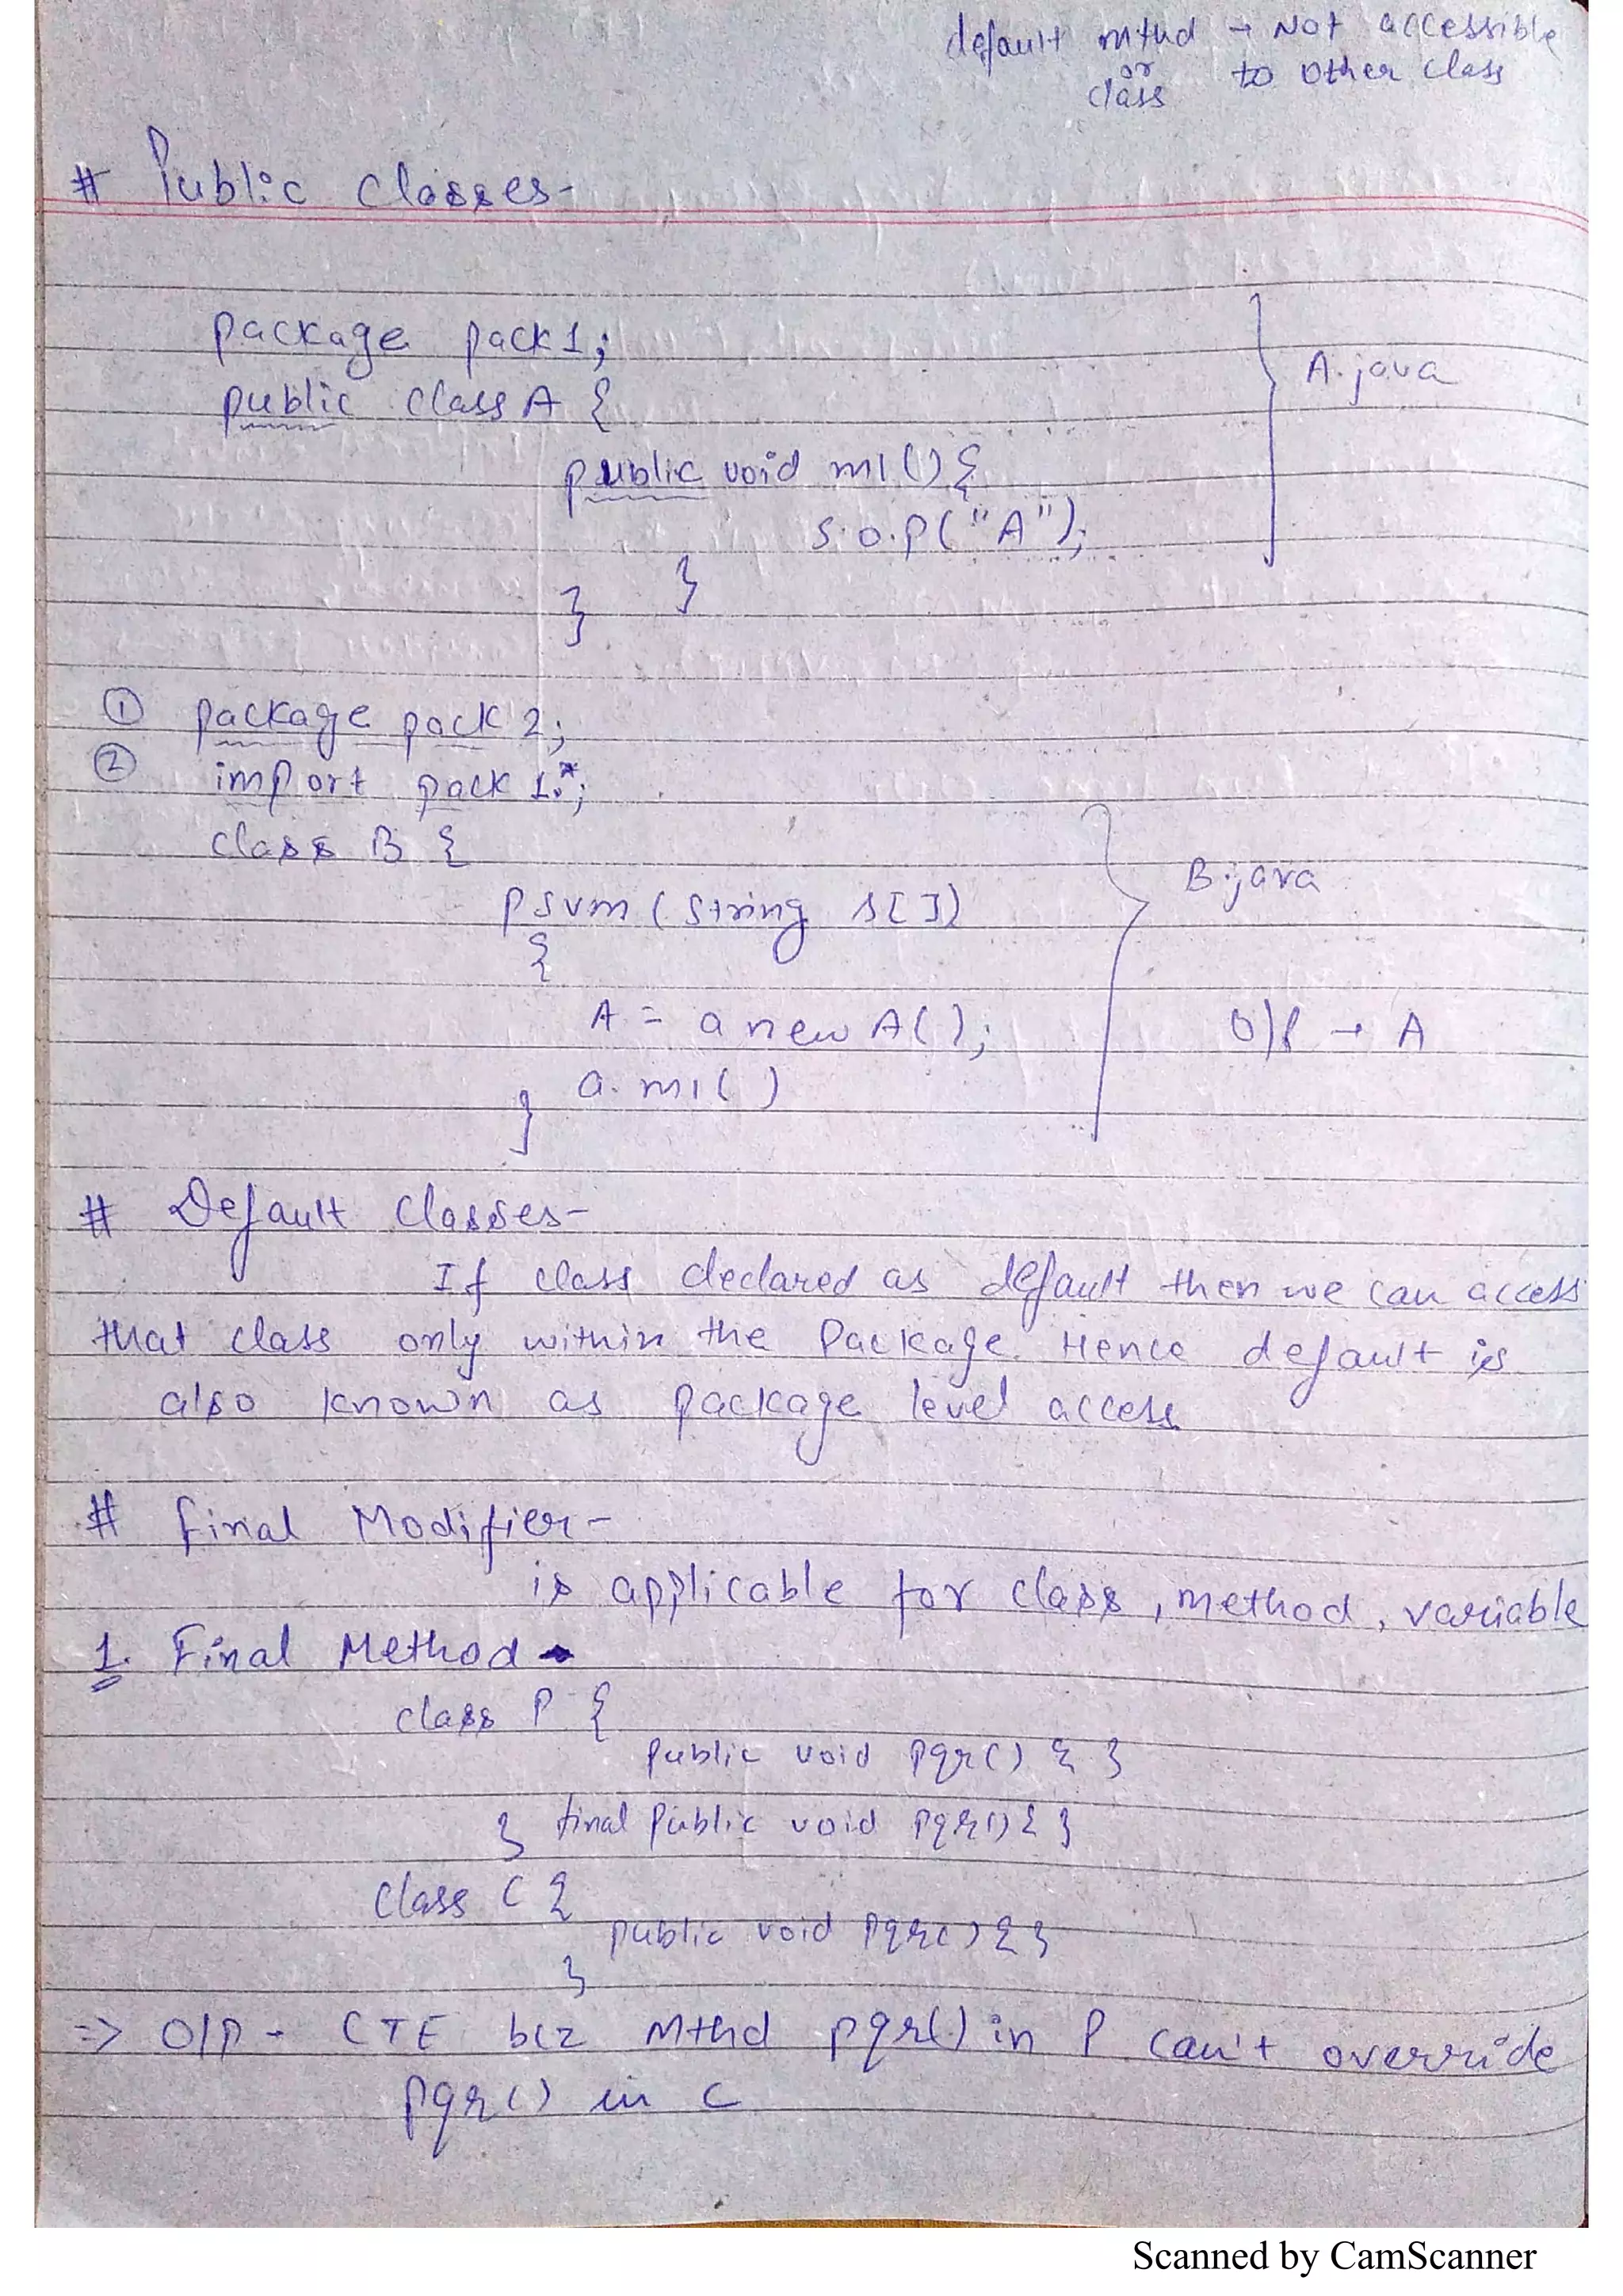 default mthd → Not accessible
or to other class
class
# Public classes-
package pack1;
public class A {
A.java
public void m1() {
S.o.p("A");
}
}
① package pack 2;
② import pack 1.*;
class B {
B.java
psvm (String s[])
{
A = a new A();
O/P → A
a. m1( )
}
# Default Classes-
If class declared as default then we can access
that class only within the Package. Hence default is
also known as package level access
# final Modifier-
is applicable for class, method, variable
1. Final Method →
class P {
public void pqr() { }
} final Public void pqr() { }
class C {
public void pqr() { }
}
=> O/P - CTE bcz Mthd pqr() in P can't override
pqr() in C
Scanned by CamScanner